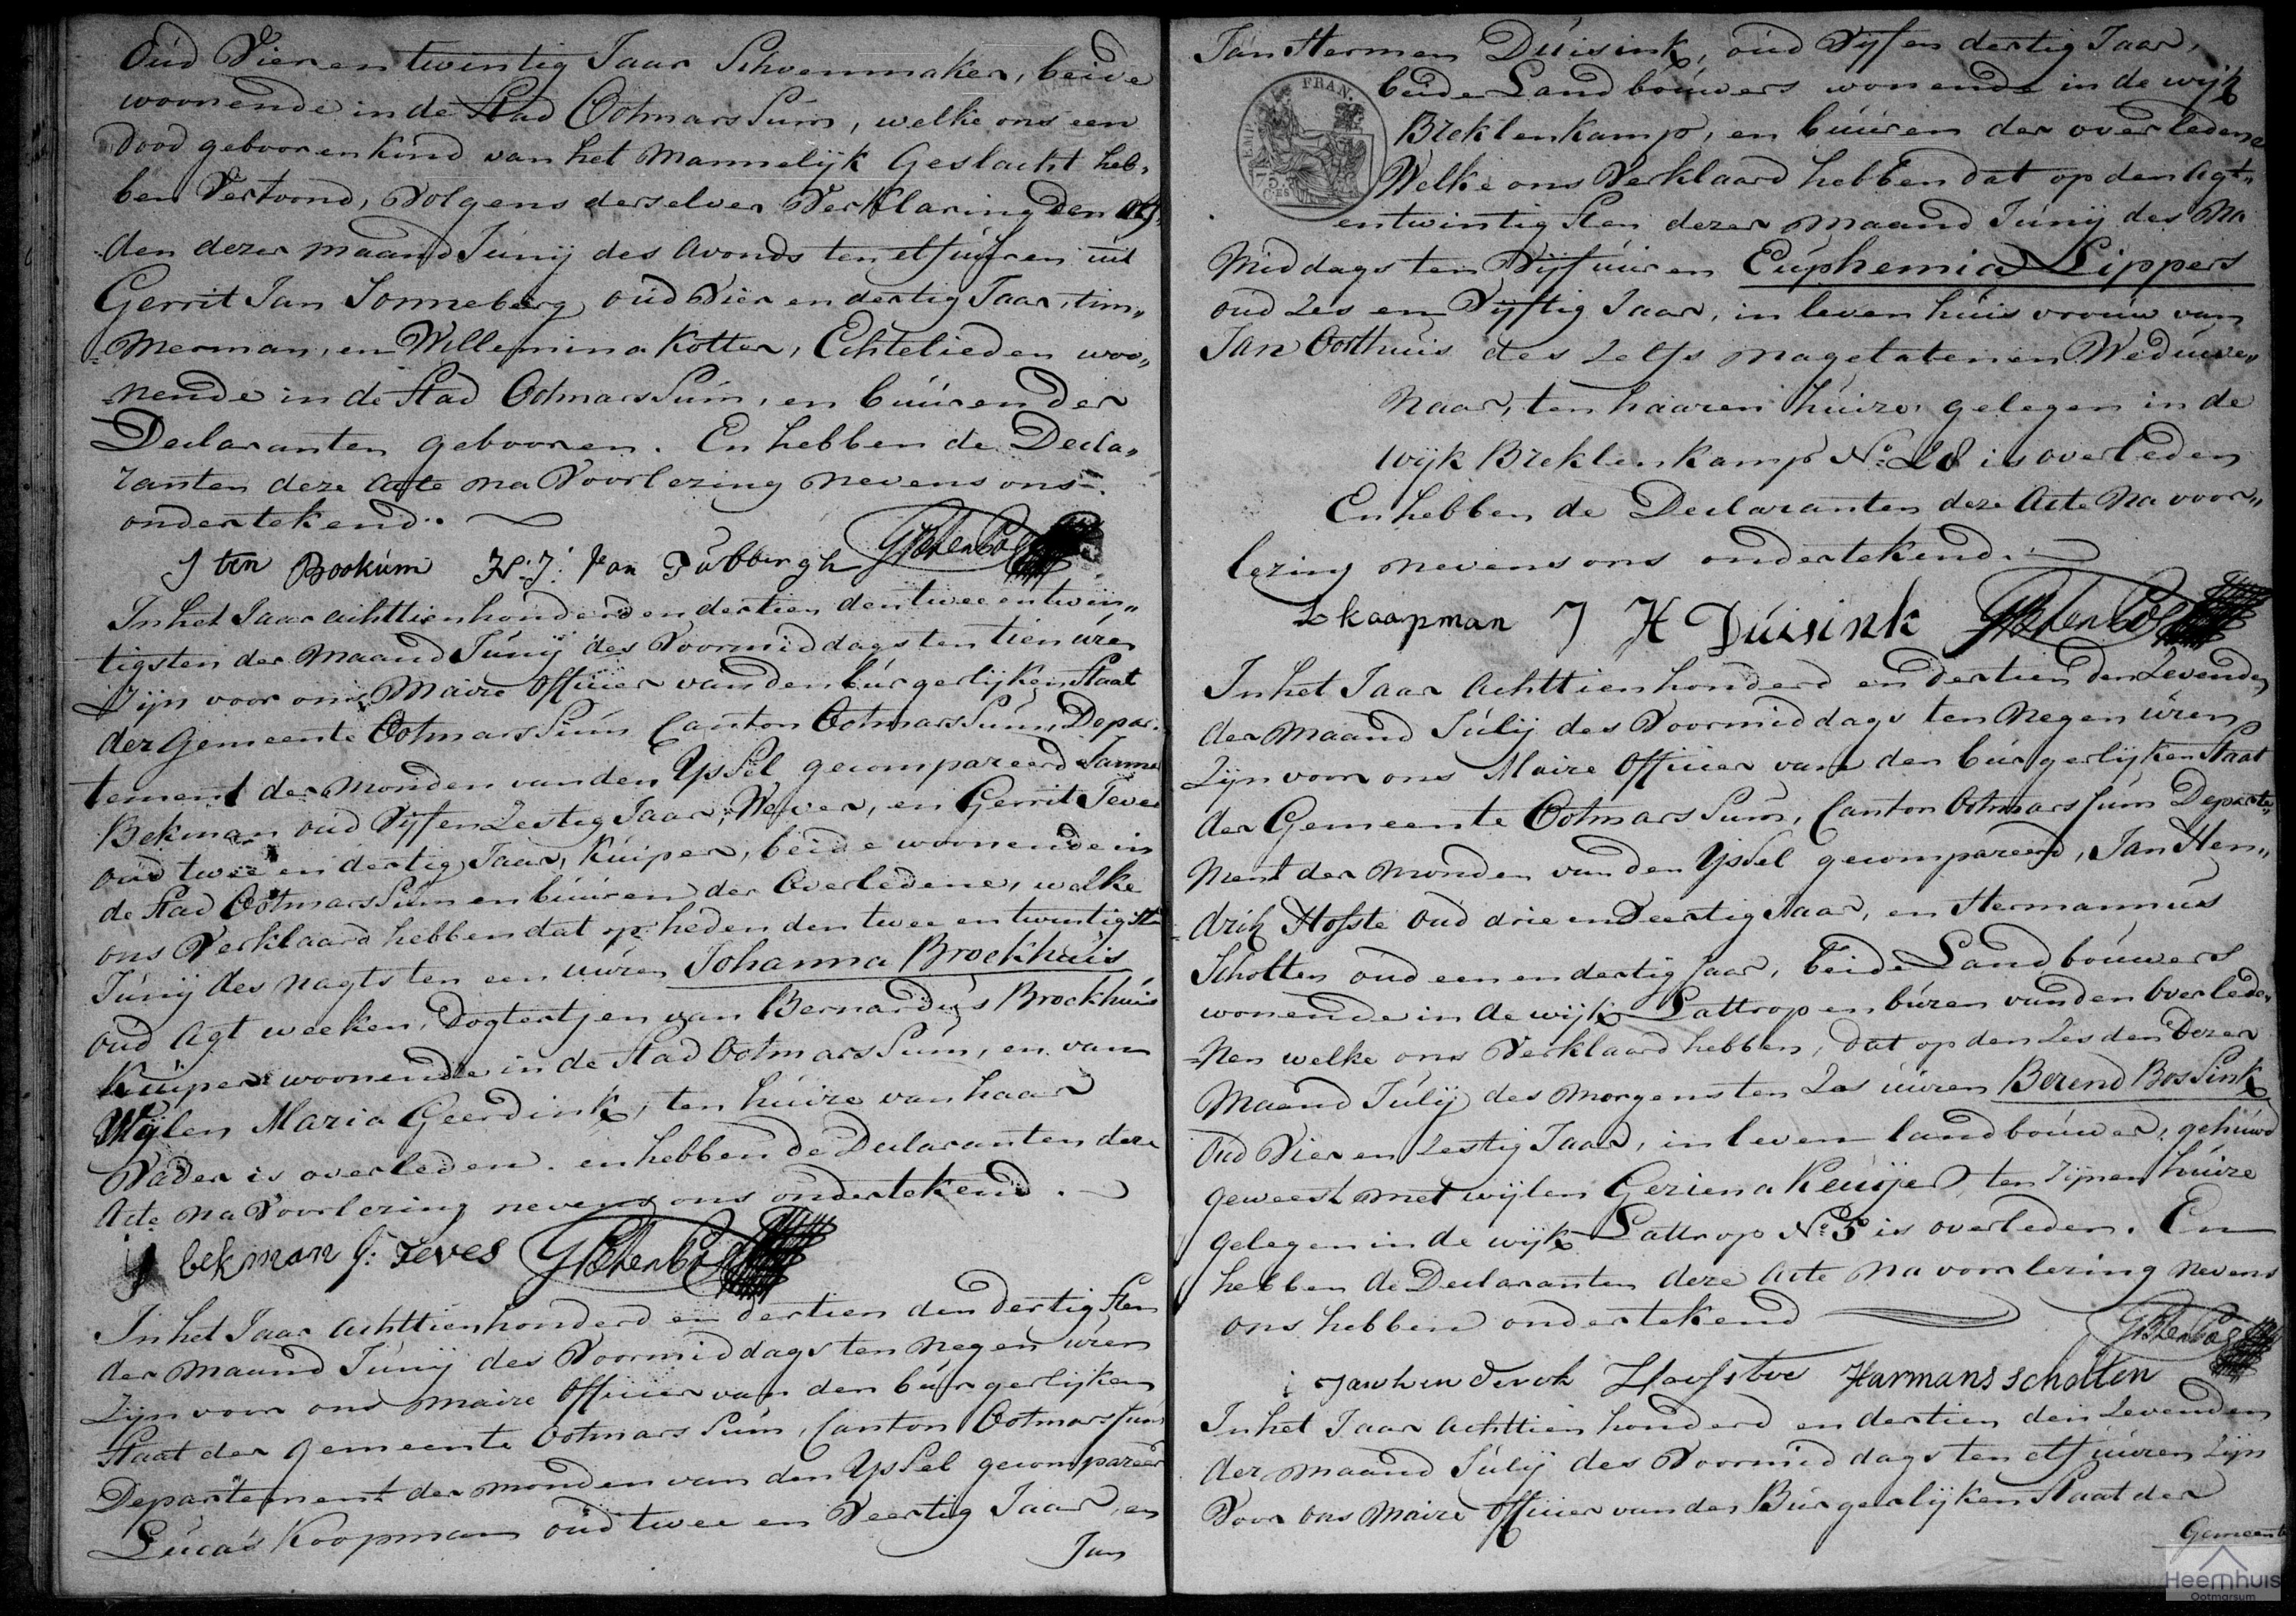 Oud Vier en twintig Jaar Schoenmaker, beide
woonende in de Stad Ootmarssum, welke ons een
dood gebooren kind van het Mannelijk Geslacht heb„
ben Vertoond, Volgens derselver Verklaring den
den dezer maand Junij des Avonds ten elf uuren uit
Gerrit Jan Sonneberg oud Vier en dertig Jaar, tim„
merman, en Willemina Kotter, Echtelieden woo„
nende in de Stad Ootmarssum, en buuren der
Declaranten gebooren. En hebben de Decla„
ranten deze Acte na Voorlezing nevens ons
ondertekend.
J ten Bookum H: J: Van
In het Jaar achttienhonderd en dertien den twee en twin„
tigsten der Maand Junij des Voormiddags ten tien uren
Zijn voor ons Maire Officier van den burgerlijken Staat
der Gemeente Ootmarssum Canton Ootmarssum, Depar„
tement der Monden van den Yssel gecompareerd
Bekman oud Vyf en Zestig Jaar, Wever, en Gerrit Teves
oud twee en dertig Jaar, Kuiper, beide woonende in
de Stad Ootmarssum en buuren der Overledene, welke
ons Verklaard hebben dat op heden den twee en twintigsten
Junij des nagts ten een uuren Johanna Brockhuis
oud Agt weeken, Dogtertjen van Bernardus Brockhuis
Kuiper woonende in de Stad Ootmarssum, en van
Wijlen Maria Geerdink, ten huize van haar
Vader is overleden. en hebben de Declaranten deze
Acte na Voorlezing nevens ons ondertekend.
bekman G: Teves
In het Jaar achttienhonderd en dertien den dertigsten
der Maand Junij des Voormiddags ten negen uren
Zijn voor ons Maire Officier van den burgerlijken
Staat der Gemeente Ootmarssum, Canton Ootmarssum
Departement der monden van den Yssel gecompareerd
Lucas Koopman oud twee en Veertig Jaar, en
Jan
Jan Hermen Duisink, oud Vyf en dertig Jaar,
beide Landbouwers wonende in de wijk
Breklenkamp, en buuren der overledene
Welke ons Verklaard hebben dat op den Agt„
en twintigsten dezer Maand Junij des Na
Middags ten Vyf uuren Euphemia Lippers
oud Zes en Vyftig Jaar, in leven huisvrouw van
Jan Oosthuis des Zelfs nagelatenen Weduwe„
naar, ten haaren huize, gelegen in de
wijk Breklenkamp No: 28 is overleden
En hebben de Declaranten deze Acte na voor„
lezing nevens ons ondertekend.
L koopman J H Duisink
In het Jaar achttienhonderd en dertien den Zevenden
der Maand Julij des Voormiddags ten Negen uren
Zijn voor ons Maire Officier van den burgerlijken Staat
der Gemeente Ootmarssum, Canton Ootmarssum Departe„
ment der Monden van den Yssel gecompareerd, Jan Hen„
drik Hofste oud drie en Veertig Jaar, en Hermannus
Scholten oud een en dertig Jaar, beide Landbouwers
wonende in de wijk Lattrop en buren van den overlede„
nen welke ons Verklaard hebben, dat op den Zesden Dezer
Maand Julij des Morgens ten Zes uuren Berend Bossink
oud Vier en Zestig Jaar, in leven landbouwer, gehuwd
geweest met wijlen Geziena Keuijer ten zijnen huize
gelegen in de wijk Lattrop No: 5 is overleden. En
hebben de Declaranten deze Acte na voorlezing nevens
ons hebben ondertekend
Harmans scholten
In het Jaar achttien honderd en dertien den Zevenden
der maand Julij des Voormiddags ten elf uuren Zijn
Voor ons Maire Officier van den Burgerlijken Staat der
Gemeente
FRAN.
Heemhuis
Ootmarsum